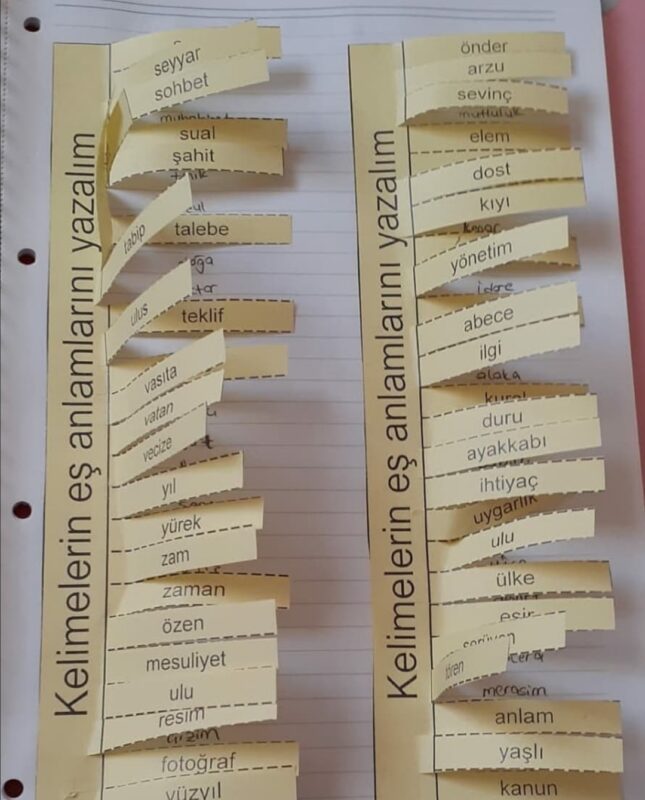 Kelimelerin eş anlamlarını yazalım
seyyar
sohbet
sual
şahit
tabip
talebe
ulus
teklif
vasıta
vatan
vecize
yıl
yürek
zam
zaman
özen
mesuliyet
ulu
resim
çizim
fotoğraf
yüzyıl
Kelimelerin eş anlamlarını yazalım
önder
arzu
sevinç
mutluluk
elem
dost
kıyı
kenar
yönetim
idare
abece
ilgi
alaka
kural
duru
ayakkabı
ihtiyaç
uygarlık
ulu
ülke
esir
serüven
tören
merasim
anlam
yaşlı
kanun